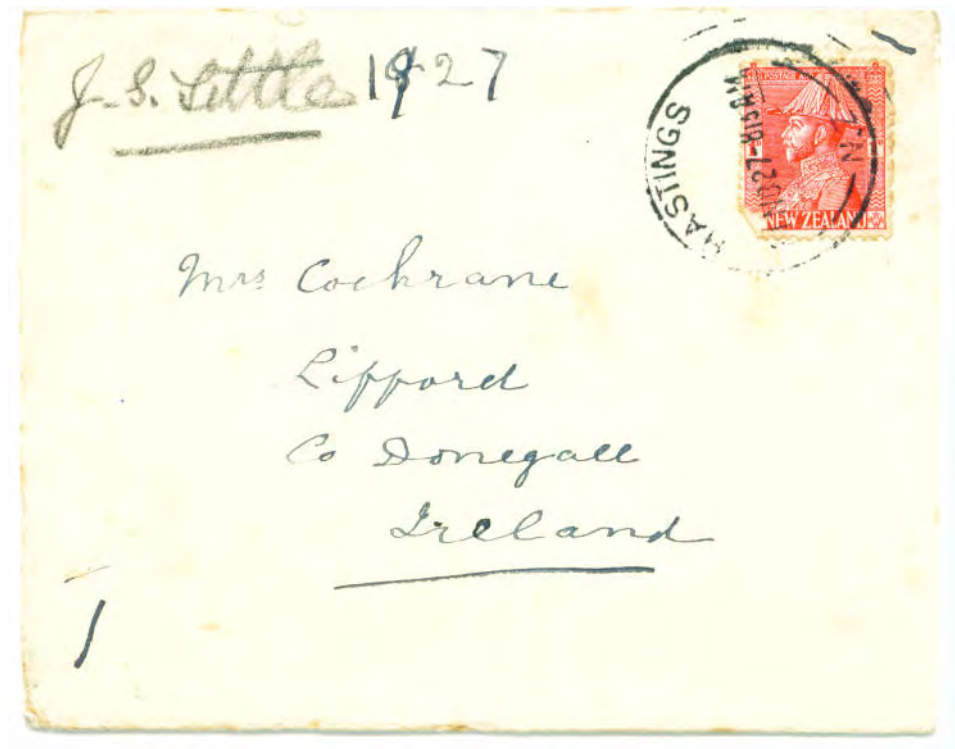 J. S. Little 1927
HASTINGS
N.Z.
27 · 815 AM
POSTAGE
NEW ZEALAND
Mrs Cochrane
Lifford
Co Donegall
Ireland